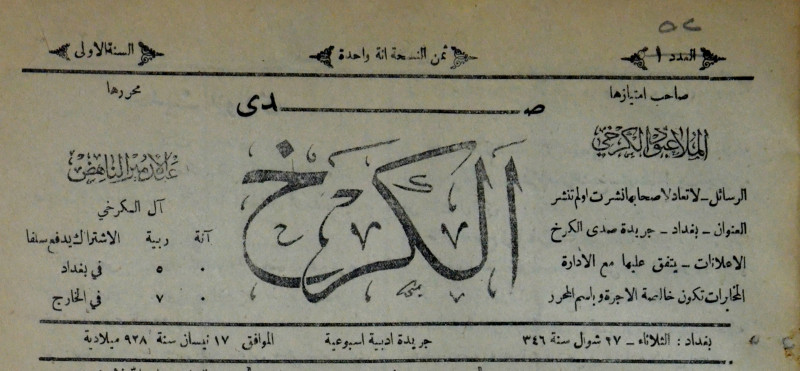 العدد ١
ثمن النسخة انة واحدة
السنة الاولى
صاحب امتيازها
الملا عبود الكرخي
صدى
الكرخ
محررها
عبد الامير الناهض
آل الكرخي
الرسائل – لا تعاد لاصحابها نشرت اولم تنشر
العنوان – بغداد – جريدة صدى الكرخ
الاعلانات – يتفق عليها مع الادارة
المخابرات تكون خالصة الاجرة وباسم المحرر
آنة ربية الاشتراك يدفع سلفا
٠ ٥ في بغداد
٠ ٧ في الخارج
بغداد : الثلاثاء – ٢٧ شوال سنة ٣٤٦ جريدة ادبية اسبوعية الموافق ١٧ نيسان سنة ٩٢٨ ميلادية